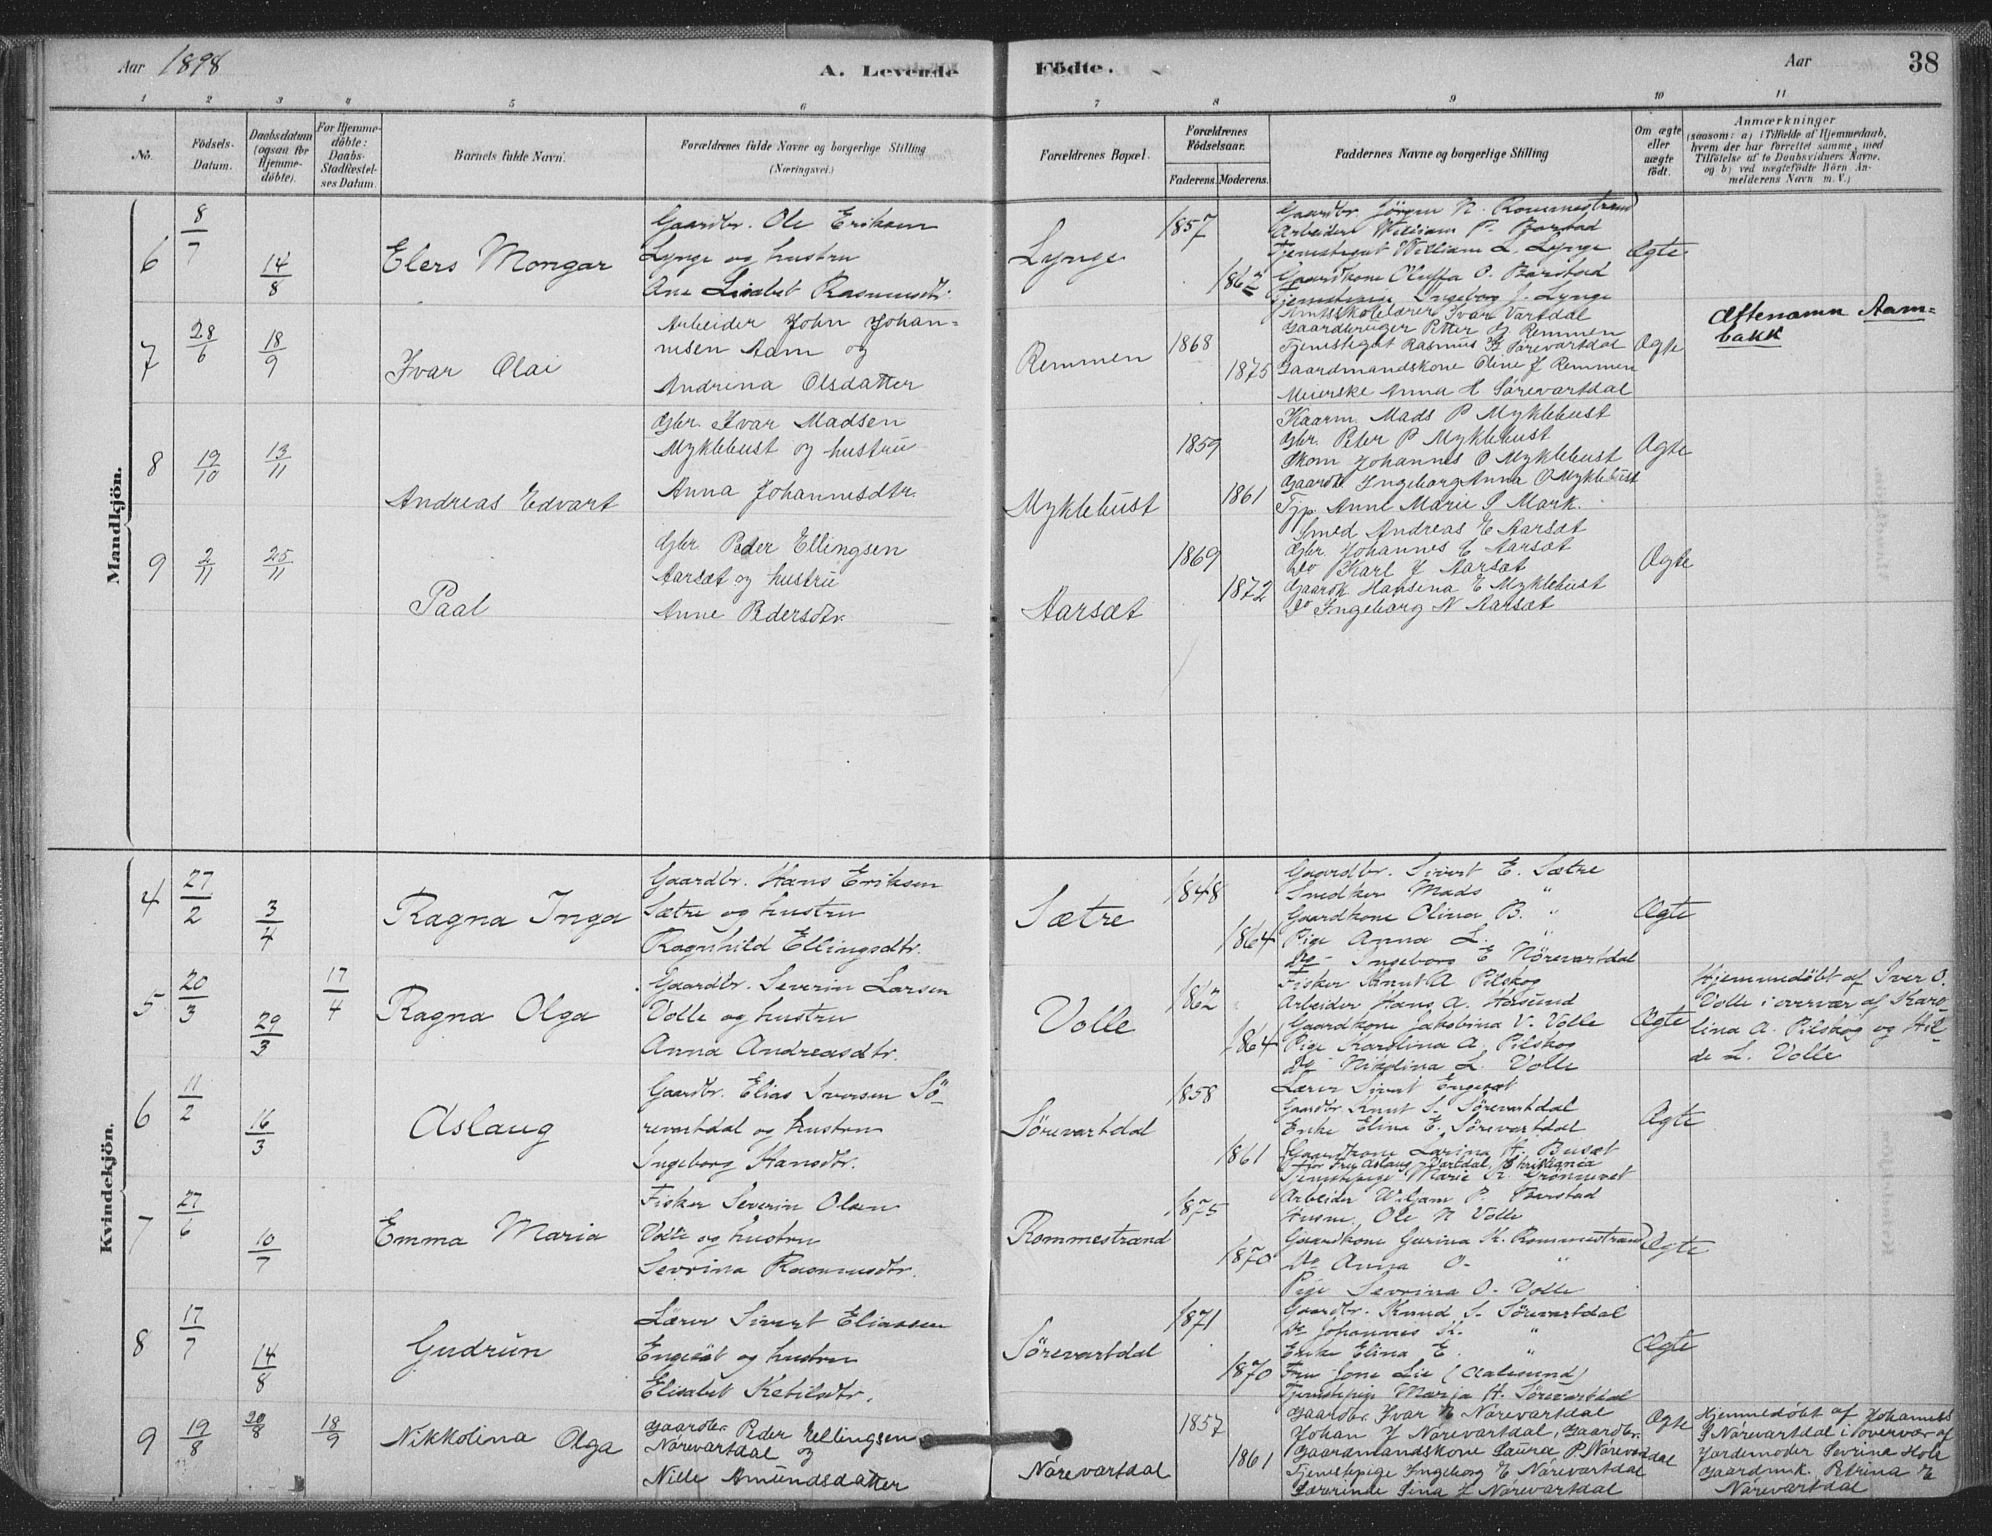 Aar 1898
A. Levende Födte.
Aar
38
1 2 3 4 5 6 7 8 9 10 11
No. Födsels-Datum. Daabsdatum (ogsaa for Hjemmedöbte). For Hjemmedöbte: Daabs-Stadfæstelses Datum. Barnets fulde Navn. Forældrenes fulde Navne og borgerlige Stilling (Næringsvei.) Forældrenes Bopæl. Forældrenes Födselsaar. Faderens. Moderens. Faddernes Navne og borgerlige Stilling Om ægte eller uægte födt. Anmærkninger
(saasom: a) i Tilfælde af Hjemmedaab, hvem der har forrettet samme, med Tilföielse af to Daabsvidners Navne, og b) ved uægtefödte Börn Anmelderens Navn m. V.)
Mandkjön.
6 8/7 14/8 Elers Mongar
Gaardbr. Ole Eriksen
Lynge og hustru
Ane Lisabet Rasmusdtr.
Lynge 1857 1862
Gaardbr. Jörgen N. Rommestrand
Arbeider William P. Barstad
Tjenestegut William L. Lynge
Gaardkone Oluffa O. Barstad
Tjenestepige Ingeborg J. Lynge
Ægte
7 28/6 18/9 Ivar Olai
Arbeider John Johan-
nesen Aam og
Andrina Olsdatter
Remmen 1868 1875
Amtsskolelærer Ivar Vartdal
Gaardbruger Petter J Remmen
Tjenstegut Rasmus K Sörevartdal
Gaardmandskone Oline J Remmen
Meierske Anna H Sörevartdal
Ægte
Æftenamn Aam-
bakk
8 19/10 13/11 Andreas Edvart
Gbr. Ivar Madsen
Myklebust og hustru
Anna Johannesdtr.
Myklebust 1859 1861
Kaarm. Mads P Myklebust
Gbr. Peter P Myklebust
Ekom Johannes O Myklebust
Gaardk Ingeborg Anna O Myklebust
Tjp. Anne Marie P Mark.
Ægte
9 2/11 25/11 Paal
Gbr Peder Ellingsen
Aarsæt og hustru
Anne Pedersdtr.
Aarsæt 1869 1872
Smed Andreas E Aarsæt
Gbr. Johannes E Aarsæt
do Karl J Aarsæt
Gaardk Hansina E Myklebust
do Ingeborg N Aarsæt
Ægte
Kvindekjön.
4 27/2 3/4 Ragna Inga
Gaardbr. Hans Eriksen
Sætre og hustru
Ragnhild Ellingsdtr.
Sætre 1848 1864
Gaardbr. Sivert E. Sætre
Snedker Mads "
Gaardkone Olina B. "
Pige Anna L. "
do - Ingeborg E Nörevartdal
Ægte
5 20/3 29/3 17/4 Ragna Olga
Gaardbr. Severin Larsen
Volle og hustru
Anna Andreasdtr.
Volle 1862 1864
Fisker Knut A Pilskog
Arbeider Hans A. Haasund
Gaardkone Jakobina V. Volle
Pige Karolina A. Pilskog
do Nikolina L. Volle
Ægte
Hjemmedöbt af Iver O.
Volle i overvær af Karo-
lina A. Pilskog og Hil-
da L. Volle
6 11/2 16/3 Aslaug
Gaardbr. Elias Iversen Sö-
revartdal og hustru
Ingeborg Hansdtr.
Sörevartdal 1858 1861
Lærer Sivert Engesæt
Gaardbr. Knut S. Sörevartdal
Enke Elina E. Sörevartdal
Gaardkone Larina H. Busæt
for Frk Aslaug Vartdal, Kristiania
Tjenestepige Marie K. Grönnevet
Ægte
7 27/6 10/7 Emma Maria
Fisker Severin Olsen
Volle og hustru
Sevrina Rasmusdtr.
Rommestrand 1875 1870
Arbeider William P. Barstad
Husm. Ole N Volle
Gaardkone Gurina K. Rommestrand
do Anna O- "
Pige Sevrina O. Volle
Ægte
8 17/7 14/8 Gudrun
Lærer Sivert Eliassen
Engesæt og hustru
Elisabet Ketilsdtr.
Sörevartdal 1871 1870
Gaardbr. Knud S. Sörevartdal
do Johannes K. "
Enke Elina E. "
Fru Jone Lie (Aalesund)
Tjenestepige Marja H. Sörevartdal
Ægte
9 19/8 20/8 18/9 Nikkolina Olga
Gaardbr. Peder Ellingsen
Nörevartdal og
Nille Amundsdatter
Nörevartdal 1857 1861
Gaardbr. Ivar E Nörevartdal
Johan J Nörevartdal, Gaardbr.
Gaardmandskone Laura P. Nörevartdal
Tjenstepige Ingeborg E Nörevartdal
Lærerinde Lina J Nörevartdal
Ægte
Hjemmedöbt af Johannes
S Nörevartdal i overvær af
Jordemoder Sevrina Hole
Gaardmk. Petrina E
Nörevartdal